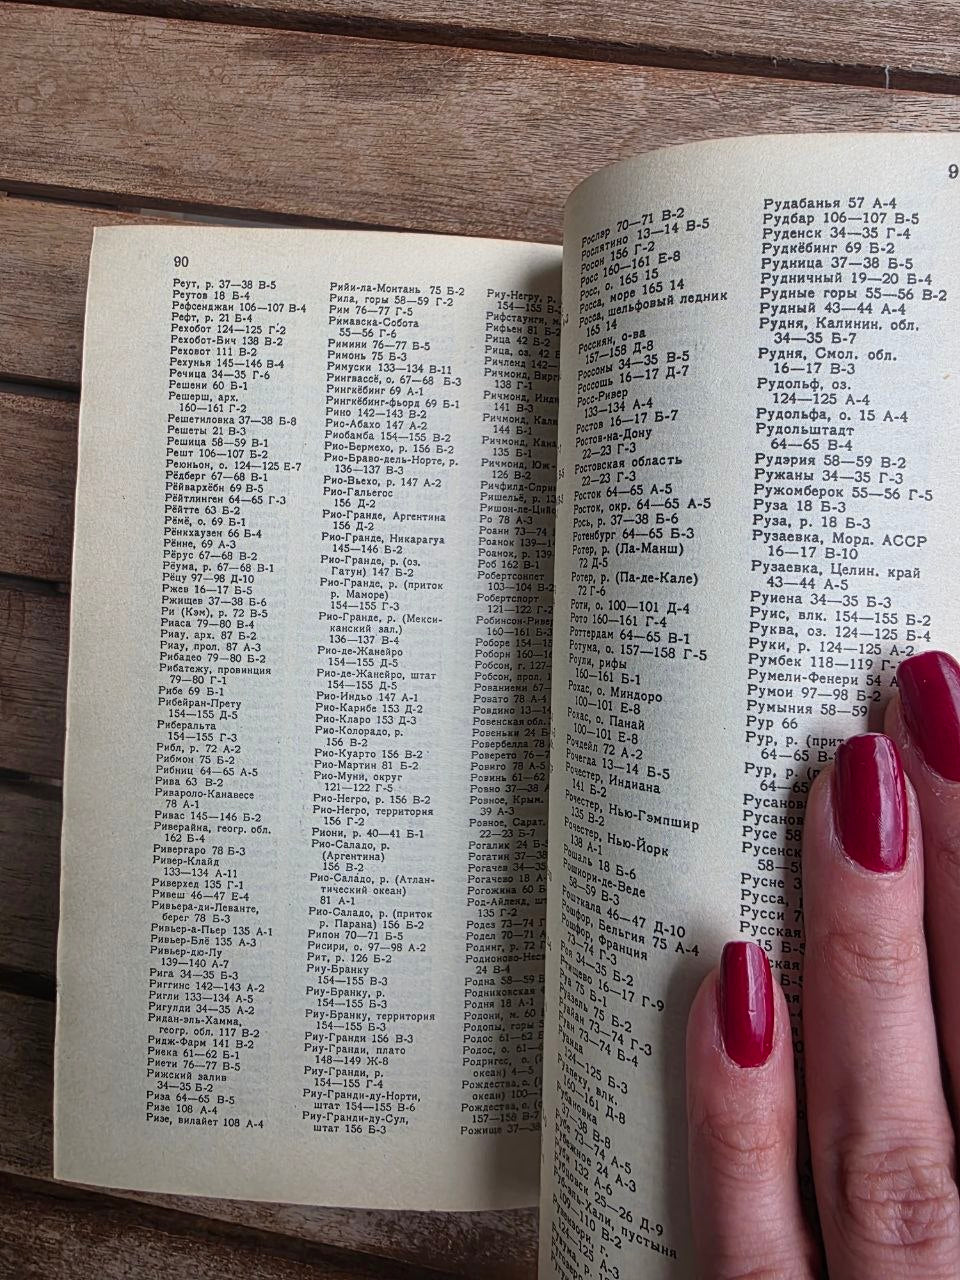 90
Реут, р. 37—38 В-5
Реутов 18 Б-4
Рефсенджан 106—107 В-4
Рефт, р. 21 Б-4
Рехобот 124—125 Г-2
Рехобот-Бич 138 В-2
Реховот 111 В-2
Рехунья 145—146 В-4
Речица 34—35 Г-6
Решени 60 Б-1
Решерш, арх.
160—161 Г-2
Решетиловка 37—38 Б-8
Решеты 21 В-3
Решица 58—59 В-1
Решт 106—107 Б-2
Реюньон, о. 124—125 Е-7
Рёдберг 67—68 В-1
Рёйвархёбн 69 В-5
Рёйтлинген 64—65 Г-3
Рёйтте 63 Б-2
Рёмё, о. 69 Б-1
Рёнкхаузен 66 Б-4
Рённе, 69 А-3
Рёрус 67—68 В-2
Рёума, р. 67—68 В-1
Рёцу 97—98 Д-10
Ржев 16—17 Б-5
Ржищев 37—38 Б-6
Ри (Кэм), р. 72 В-5
Риаса 79—80 В-4
Риау, арх. 87 Б-2
Риау, прол. 87 А-3
Рибадео 79—80 Б-2
Рибатежу, провинция
79—80 Г-1
Рибе 69 Б-1
Рибейран-Прету
154—155 Д-5
Риберальта
154—155 Г-3
Рибл, р. 72 А-2
Рибмон 75 Б-2
Рибниц 64—65 А-5
Рива 63 В-2
Ривароло-Канавесе
78 А-1
Ривас 145—146 Б-2
Риверайна, геогр. обл.
162 Б-4
Ривергаро 78 Б-3
Ривер-Клайд
133—134 А-11
Риверхед 135 Г-1
Ривеш 46—47 Е-4
Ривьера-ди-Леванте,
берег 78 Б-3
Ривьер-а-Пьер 135 А-1
Ривьер-Блё 135 А-3
Ривьер-дю-Лу
139—140 А-7
Рига 34—35 Б-3
Риггинс 142—143 А-2
Ригли 133—134 А-5
Ригулди 34—35 А-2
Ридан-эль-Хамма,
геогр. обл. 117 В-2
Ридж-Фарм 141 В-2
Риека 61—62 Б-1
Риети 76—77 В-5
Рижский залив
34—35 Б-2
Риза 64—65 В-5
Ризе 108 А-4
Ризе, вилайет 108 А-4
Рийи-ла-Монтань 75 Б-2
Рила, горы 58—59 Г-2
Рим 76—77 Г-5
Римавска-Собота
55—56 Г-6
Римини 76—77 Б-5
Римонь 75 Б-3
Римуски 133—134 В-11
Рингвассё, о. 67—68 Б-3
Рингкёбинг 69 А-1
Рингкёбинг-фьорд 69 Б-1
Рино 142—143 В-2
Рио-Абахо 147 А-2
Риобамба 154—155 В-2
Рио-Бермехо, р. 156 Б-2
Рио-Браво-дель-Норте, р.
136—137 В-3
Рио-Вьехо, р. 147 А-2
Рио-Гальегос
156 Д-2
Рио-Гранде, Аргентина
156 Д-2
Рио-Гранде, Никарагуа
145—146 Б-2
Рио-Гранде, р. (оз.
Гатун) 147 Б-2
Рио-Гранде, р. (приток
р. Маморе)
154—155 Г-3
Рио-Гранде, р. (Мекси-
канский зал.)
136—137 В-4
Рио-де-Жанейро
154—155 Д-5
Рио-де-Жанейро, штат
154—155 Д-5
Рио-Индьо 147 А-1
Рио-Карибе 153 Д-2
Рио-Кларо 153 Д-3
Рио-Колорадо, р.
156 В-2
Рио-Куарто 156 В-2
Рио-Мартин 81 Б-2
Рио-Муни, округ
121—122 Г-5
Рио-Негро, р. 156 В-2
Рио-Негро, территория
156 Г-2
Риони, р. 40—41 Б-1
Рио-Саладо, р.
(Аргентина)
156 В-2
Рио-Саладо, р. (Атлан-
тический океан)
81 А-1
Рио-Саладо, р. (приток
р. Парана) 156 Б-2
Рипон 70—71 Б-5
Рисири, о. 97—98 А-2
Рит, р. 126 Б-2
Риу-Бранку
154—155 В-3
Риу-Бранку, р.
154—155 Б-3
Риу-Бранку, территория
154—155 Б-3
Риу-Гранди 156 В-3
Риу-Гранди, плато
148—149 Ж-8
Риу-Гранди, р.
154—155 Г-4
Риу-Гранди-ду-Норти,
штат 154—155 В-6
Риу-Гранди-ду-Сул,
штат 156 Б-3
Риу-Негру, р.
154—155 В-
Рифстаунги, м.
Рифьен 81 Б-2
Рица 42 Б-2
Рица, оз. 42 Б
Ричленд 142—
Ричмонд, Вирг
138 Г-1
Ричмонд, Инд
141 В-3
Ричмонд, Кали
144 Б-1
Ричмонд, Кана
135 Б-1
Ричмонд, Юж-
126 В-2
Ричфилд-Спри
Ришельё, р. 13
Ришон-ле-Цийо
Ро 78 А-3
Роанн 73—74
Роанок 139—14
Роанок, р. 139-
Роб 162 В-1
Робертсонпет
103—104 В-2
Робертспорт
121—122 Г-2
Робинсон-Ривер
160—161 Б-3
Роборе 154—15
Роборн 160—16
Робсон, г. 127-
Робсон, прол.
Рованиеми 67—
Ровато 78 А-4
Ровдино 13—14
Ровенская обл.
Ровеньки 24 Б-
Ровербелла 78
Роверето 76—7
Ровиго 78 А-5
Ровинь 61—62
Ровно 37—38 А
Ровное, Крым.
39 А-3
Ровное, Сарат.
22—23 Б-7
Рогалик 24 Б-
Рогатин 37—38
Рогачев 34—35
Рогачево 18 А-
Рогожина 60 Б
Род-Айленд, шт
135 Г-2
Родез 73—74 Г
Родел 70—71 А
Родинг, р. 72 Г
Родионово-Несв
24 В-4
Родна 58—59 Б
Родниковская 4
Родня 18 А-1
Родони, м. 60
Родопы, горы 5
Родос 61—62 Б
Родос, о. 61—6
Родригес, о. (
океан) 4—5
Рождества, о. (
океан) 100—1
Рождества, о. (
157—158 В-7
Рожище 37—38
9
Рослэр 70—71 В-2
Рослятино 13—14 В-5
Росон 156 Г-2
Росс 160—161 Е-8
Росс, о. 165 15
Росса, море 165 14
Росса, шельфовый ледник
165 14
Россиян, о-ва
157—158 Д-8
Россоны 34—35 В-5
Россошь 16—17 Д-7
Росс-Ривер
133—134 А-4
Ростов 16—17 Б-7
Ростов-на-Дону
22—23 Г-3
Ростовская область
22—23 Г-3
Росток 64—65 А-5
Росток, окр. 64—65 А-5
Рось, р. 37—38 Б-6
Ротенбург 64—65 Б-3
Ротер, р. (Ла-Манш)
72 Д-5
Ротер, р. (Па-де-Кале)
72 Г-6
Роти, о. 100—101 Д-4
Рото 160—161 Г-4
Роттердам 64—65 В-1
Ротума, о. 157—158 Г-5
Роули, рифы
160—161 Б-1
Рохас, о. Миндоро
100—101 Е-8
Рохас, о. Панай
100—101 Е-8
Рочдейл 72 А-2
Рочегда 13—14 Б-5
Рочестер, Индиана
141 Б-2
Рочестер, Нью-Гэмпшир
135 В-2
Рочестер, Нью-Йорк
138 А-1
Рошаль 18 Б-6
Рошиори-де-Веде
58—59 В-3
Рошткала 46—47 Д-10
Рошфор, Бельгия 75 А-4
Рошфор, Франция
73—74 Г-3
Роя 34—35 Б-2
Ртищево 16—17 Г-9
Руа 75 Б-1
Руазель 75 Б-2
Руайан 73—74 Г-3
Руан 73—74 Б-4
Руанда
124—125 Б-3
Руапеху, влк.
160—161 Д-8
Рубановка
37—38 В-8
Рубе 73—74 А-5
Рубежное 24 А-3
Руби 132 А-6
Рубцовск 25—26 Д-9
Руб-эль-Хали, пустыня
109—110 В-2
Рувензори, г.
124—125 А-3
Рувума, р.
Рудабанья 57 А-4
Рудбар 106—107 В-5
Руденск 34—35 Г-4
Рудкёбинг 69 Б-2
Рудница 37—38 Б-5
Рудничный 19—20 Б-4
Рудные горы 55—56 В-2
Рудный 43—44 А-4
Рудня, Калинин. обл.
34—35 Б-7
Рудня, Смол. обл.
16—17 В-3
Рудольф, оз.
124—125 А-4
Рудольфа, о. 15 А-4
Рудольштадт
64—65 В-4
Рудэрия 58—59 В-2
Ружаны 34—35 Г-3
Ружомберок 55—56 Г-5
Руза 18 Б-3
Руза, р. 18 Б-3
Рузаевка, Морд. АССР
16—17 В-10
Рузаевка, Целин. край
43—44 А-5
Руиена 34—35 Б-3
Руис, влк. 154—155 Б-2
Руква, оз. 124—125 Б-4
Руки, р. 124—125 А-2
Румбек 118—119 Г-
Румели-Фенери 54 А
Румои 97—98 Б-2
Румыния 58—59
Рур 66
Рур, р. (прит
64—65 В-
Рур, р. (п
64—65
Русанов
Русанов
Русе 58
Русенск
58—5
Русне 3
Русса,
Русси 7
Русская
15 Б-5
ская